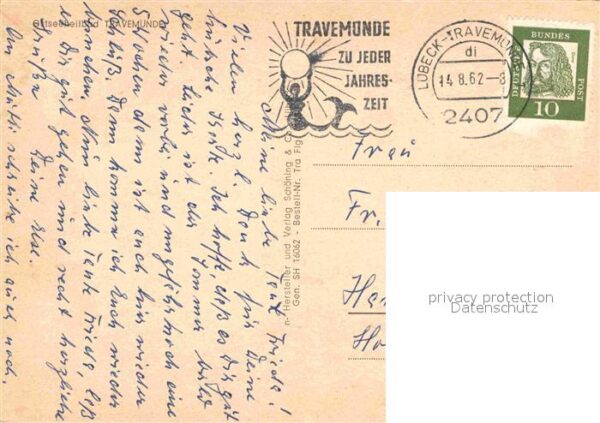 Ostseeheilbad TRAVEMÜNDE
TRAVEMÜNDE
ZU JEDER
JAHRES-
ZEIT
LÜBECK-TRAVEMÜNDE
di
14.8.62-8
2407
DEUTSCHE
BUNDES
POST
10
Meine liebe Tante Frieda!
Vielen herzl. Dank für Deine
Karte. Ich hoffe, daß es Dir gut
geht. Leider ist der Sommer bald
wieder vorbei und ungefähr noch eine
Wochen dann ist auch hier wieder
Schluß. Dann komme ich nach wieder
München. Nun liebe Tante Frieda, laß
es Dir gut gehen und recht herzliche
Grüße Deine Ilse.
An Mutti schreibe ich auch noch.
Hersteller und Verlag Schöning & C
Gen. SH 16062 - Bestell-Nr. Tra
Frau
Fr.
Ha
Ho
privacy protection
Datenschutz